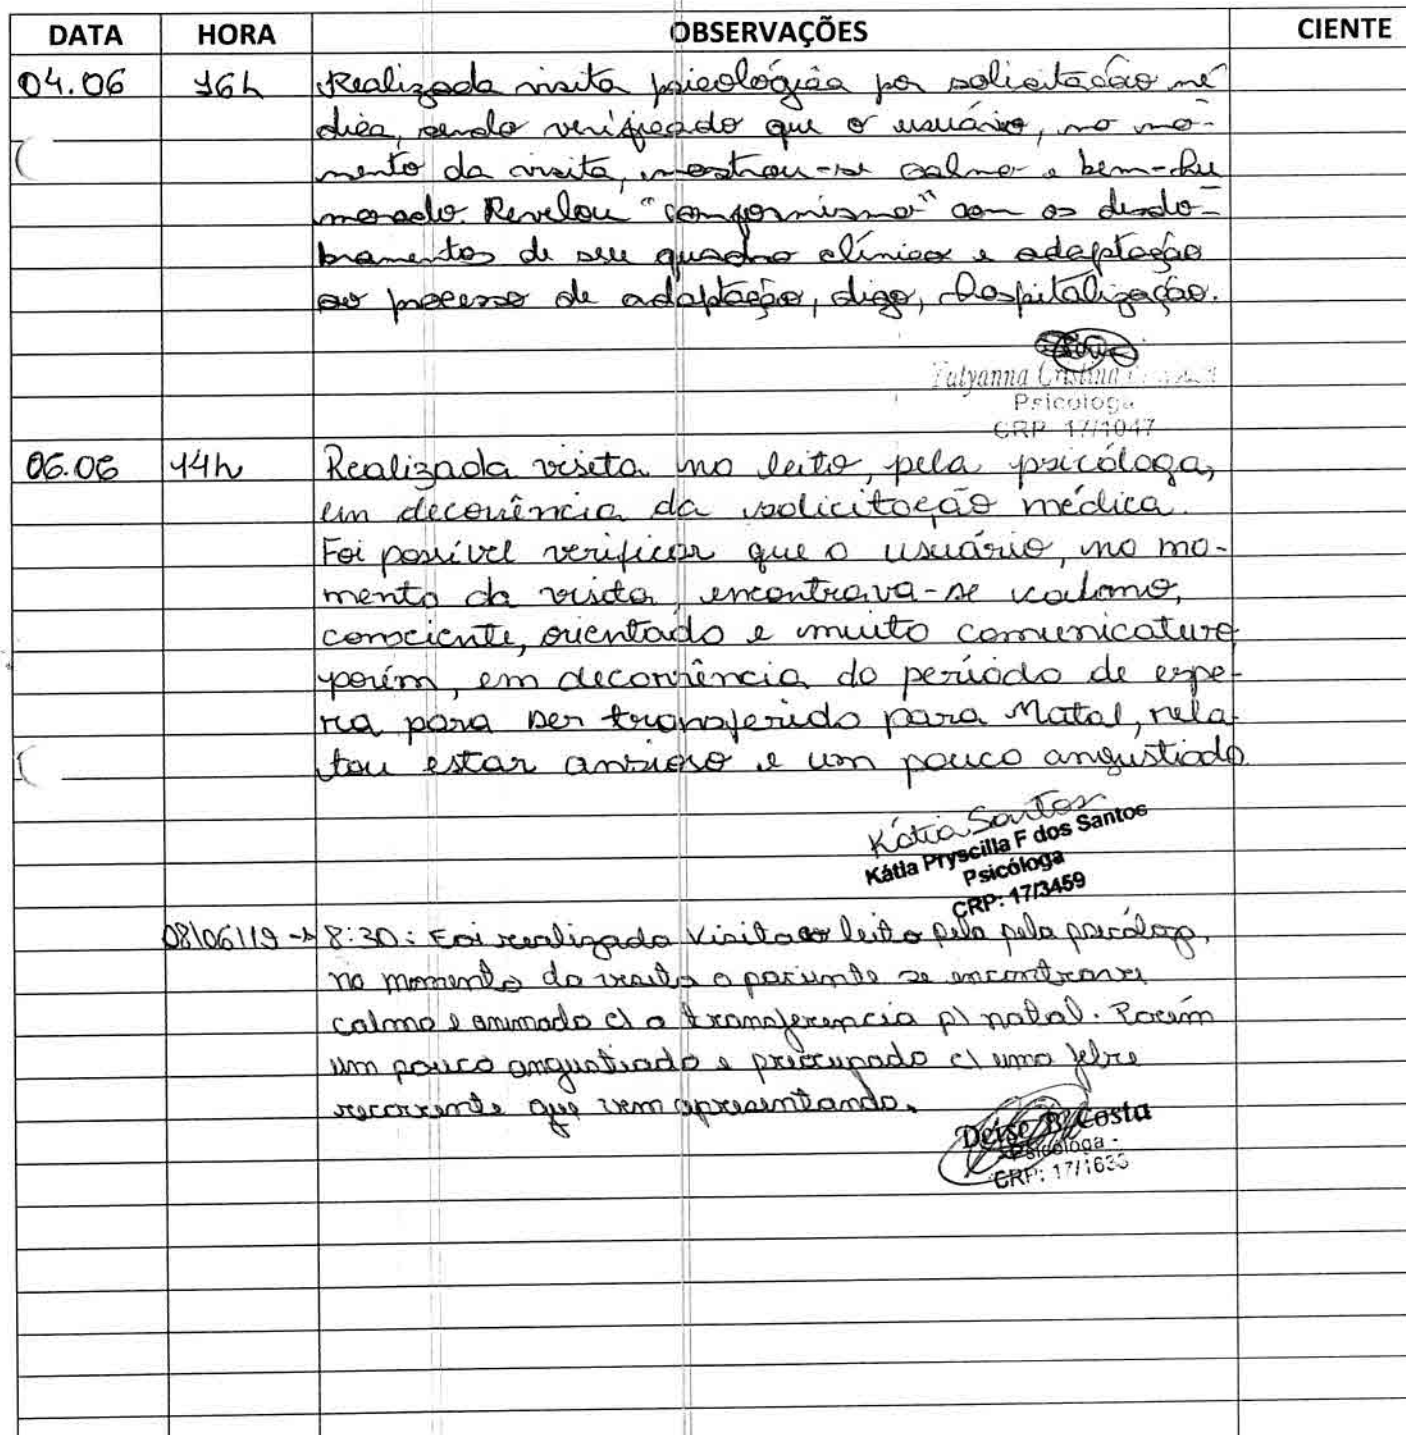 DATA HORA OBSERVAÇÕES CIENTE
04.06 16h Realizada visita psicológica por solicitação mé
dica, sendo verificado que o usuário, no mo-
mento da visita, mostrou-se calmo e bem-hu
morado. Revelou "conformismo" com os desdo-
bramentos de seu quadro clínico e adaptação
ao processo de adaptação, digo, hospitalização.
Talyanna Cristina
Psicóloga
CRP 17/1047
06.06 14h Realizada visita no leito, pela psicóloga,
em decorrência da solicitação médica.
Foi possível verificar que o usuário, no mo-
mento da visita, encontrava-se calmo,
consciente, orientado e muito comunicativo
porém, em decorrência do período de espe-
ra para ser transferido para Natal, rela-
tou estar ansioso e um pouco angustiado.
Kátia Santos
Kátia Pryscilla F dos Santos
Psicóloga
CRP: 17/3459
08/06/19 → 8:30: Foi realizada Visita ao leito pela pela psicóloga,
no momento da visita o paciente se encontrava
calmo e animado c/ a transferencia p/ natal. Porém
um pouco angustiado e preocupado c/ uma febre
recorrente que vem apresentando.
Deise B. Costa
- Psicóloga -
CRP: 17/1633